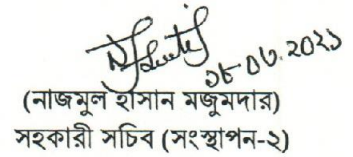 ১৮.০৬.২০২১
(নাজমুল হাসান মজুমদার)
সহকারী সচিব (সংস্থাপন-২)